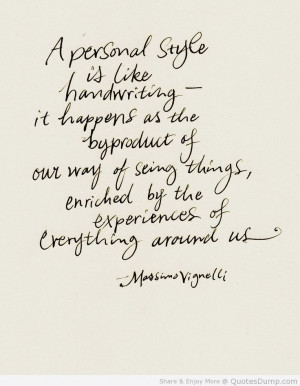 A personal style
is like
handwriting —
it happens as the
byproduct of
our way of seing things,
enriched by the
experiences of
everything around us
— Massimo Vignelli
Share & Enjoy More @ QuotesDump.com